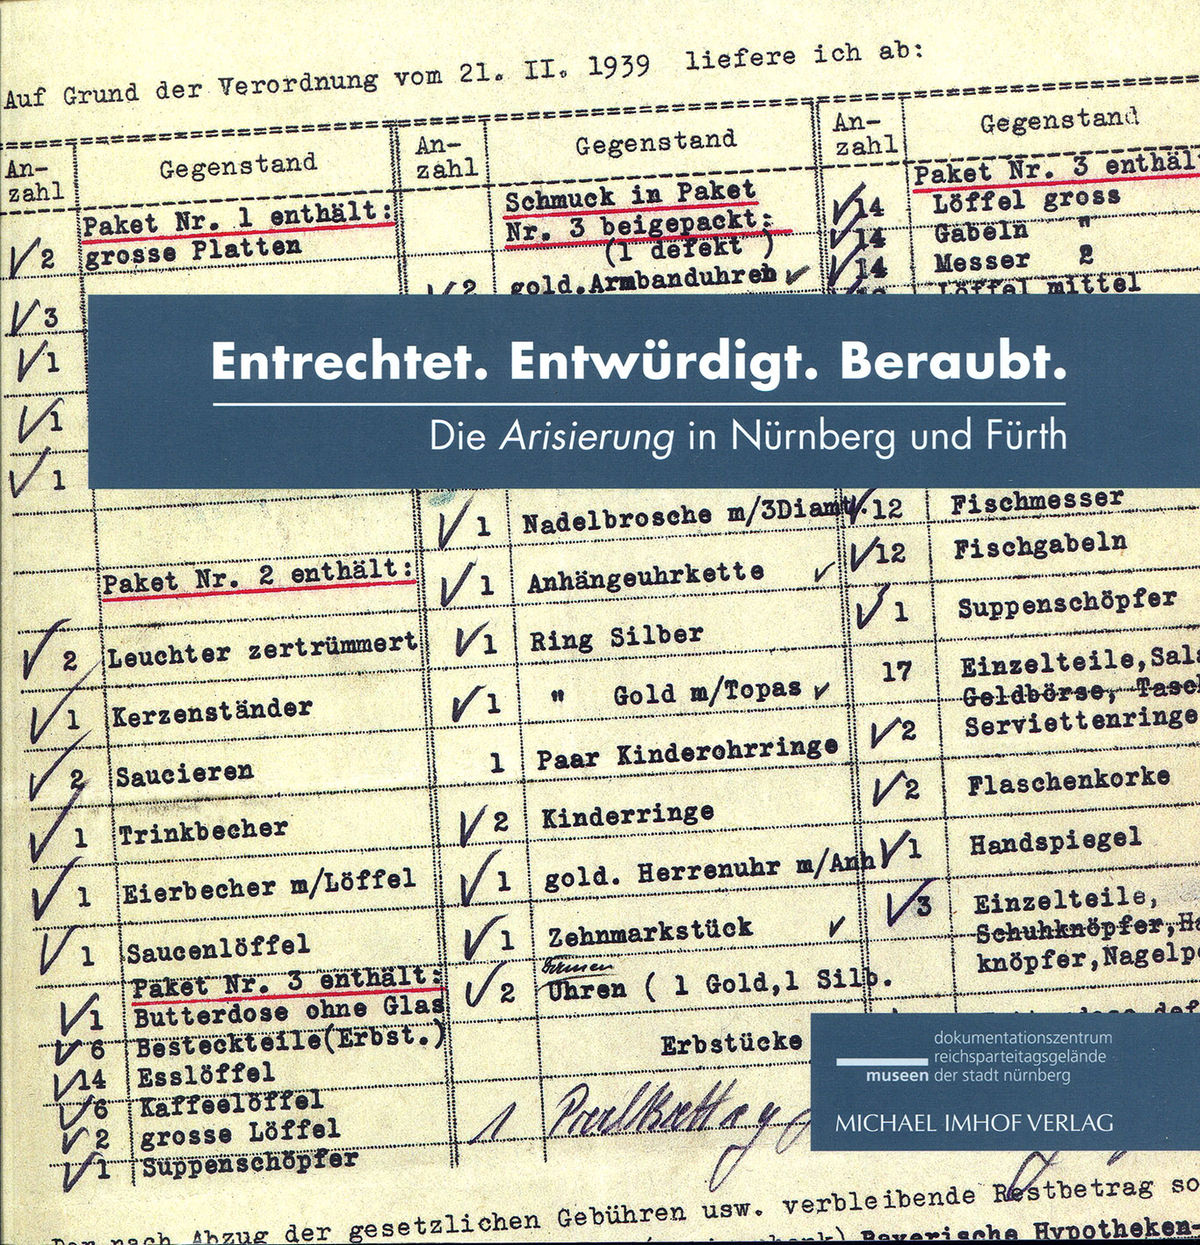 Auf Grund der Verordnung vom 21. II. 1939 liefere ich ab:
An-
zahl
Gegenstand
Paket Nr. 1 enthält:
2 grosse Platten
3
1
1
1
Paket Nr. 2 enthält:
2 Leuchter zertrümmert
1 Kerzenständer
2 Saucieren
1 Trinkbecher
1 Eierbecher m/Löffel
1 Saucenlöffel
Paket Nr. 3 enthält:
1 Butterdose ohne Glas
6 Besteckteile(Erbst.)
14 Esslöffel
6 Kaffeelöffel
2 grosse Löffel
1 Suppenschöpfer
An-
zahl
Gegenstand
Schmuck in Paket
Nr. 3 beigepackt:
(1 defekt )
2 gold.Armbanduhren
Entrechtet. Entwürdigt. Beraubt.
Die Arisierung in Nürnberg und Fürth
1 Nadelbrosche m/3Diamt.
1 Anhängeuhrkette
1 Ring Silber
1 " Gold m/Topas
1 Paar Kinderohrringe
2 Kinderringe
1 gold. Herrenuhr m/Anh
1 Zehnmarkstück
2 Uhren ( 1 Gold,1 Silb.
Erbstücke
1
An-
zahl
Gegenstand
Paket Nr. 3 enthält
14 Löffel gross
14 Gabeln "
14 Messer
Löffel mittel
12 Fischmesser
12 Fischgabeln
1 Suppenschöpfer
17 Einzelteile,
Geldbörse,
2 Serviettenringe
2 Flaschenkorke
1 Handspiegel
3 Einzelteile,
Schuhknöpfer,
knöpfer,
dokumentationszentrum
reichsparteitagsgelände
museen der stadt nürnberg
MICHAEL IMHOF VERLAG
nach Abzug der gesetzlichen Gebühren usw. verbleibende Restbetrag
Bayerische Hypotheken-